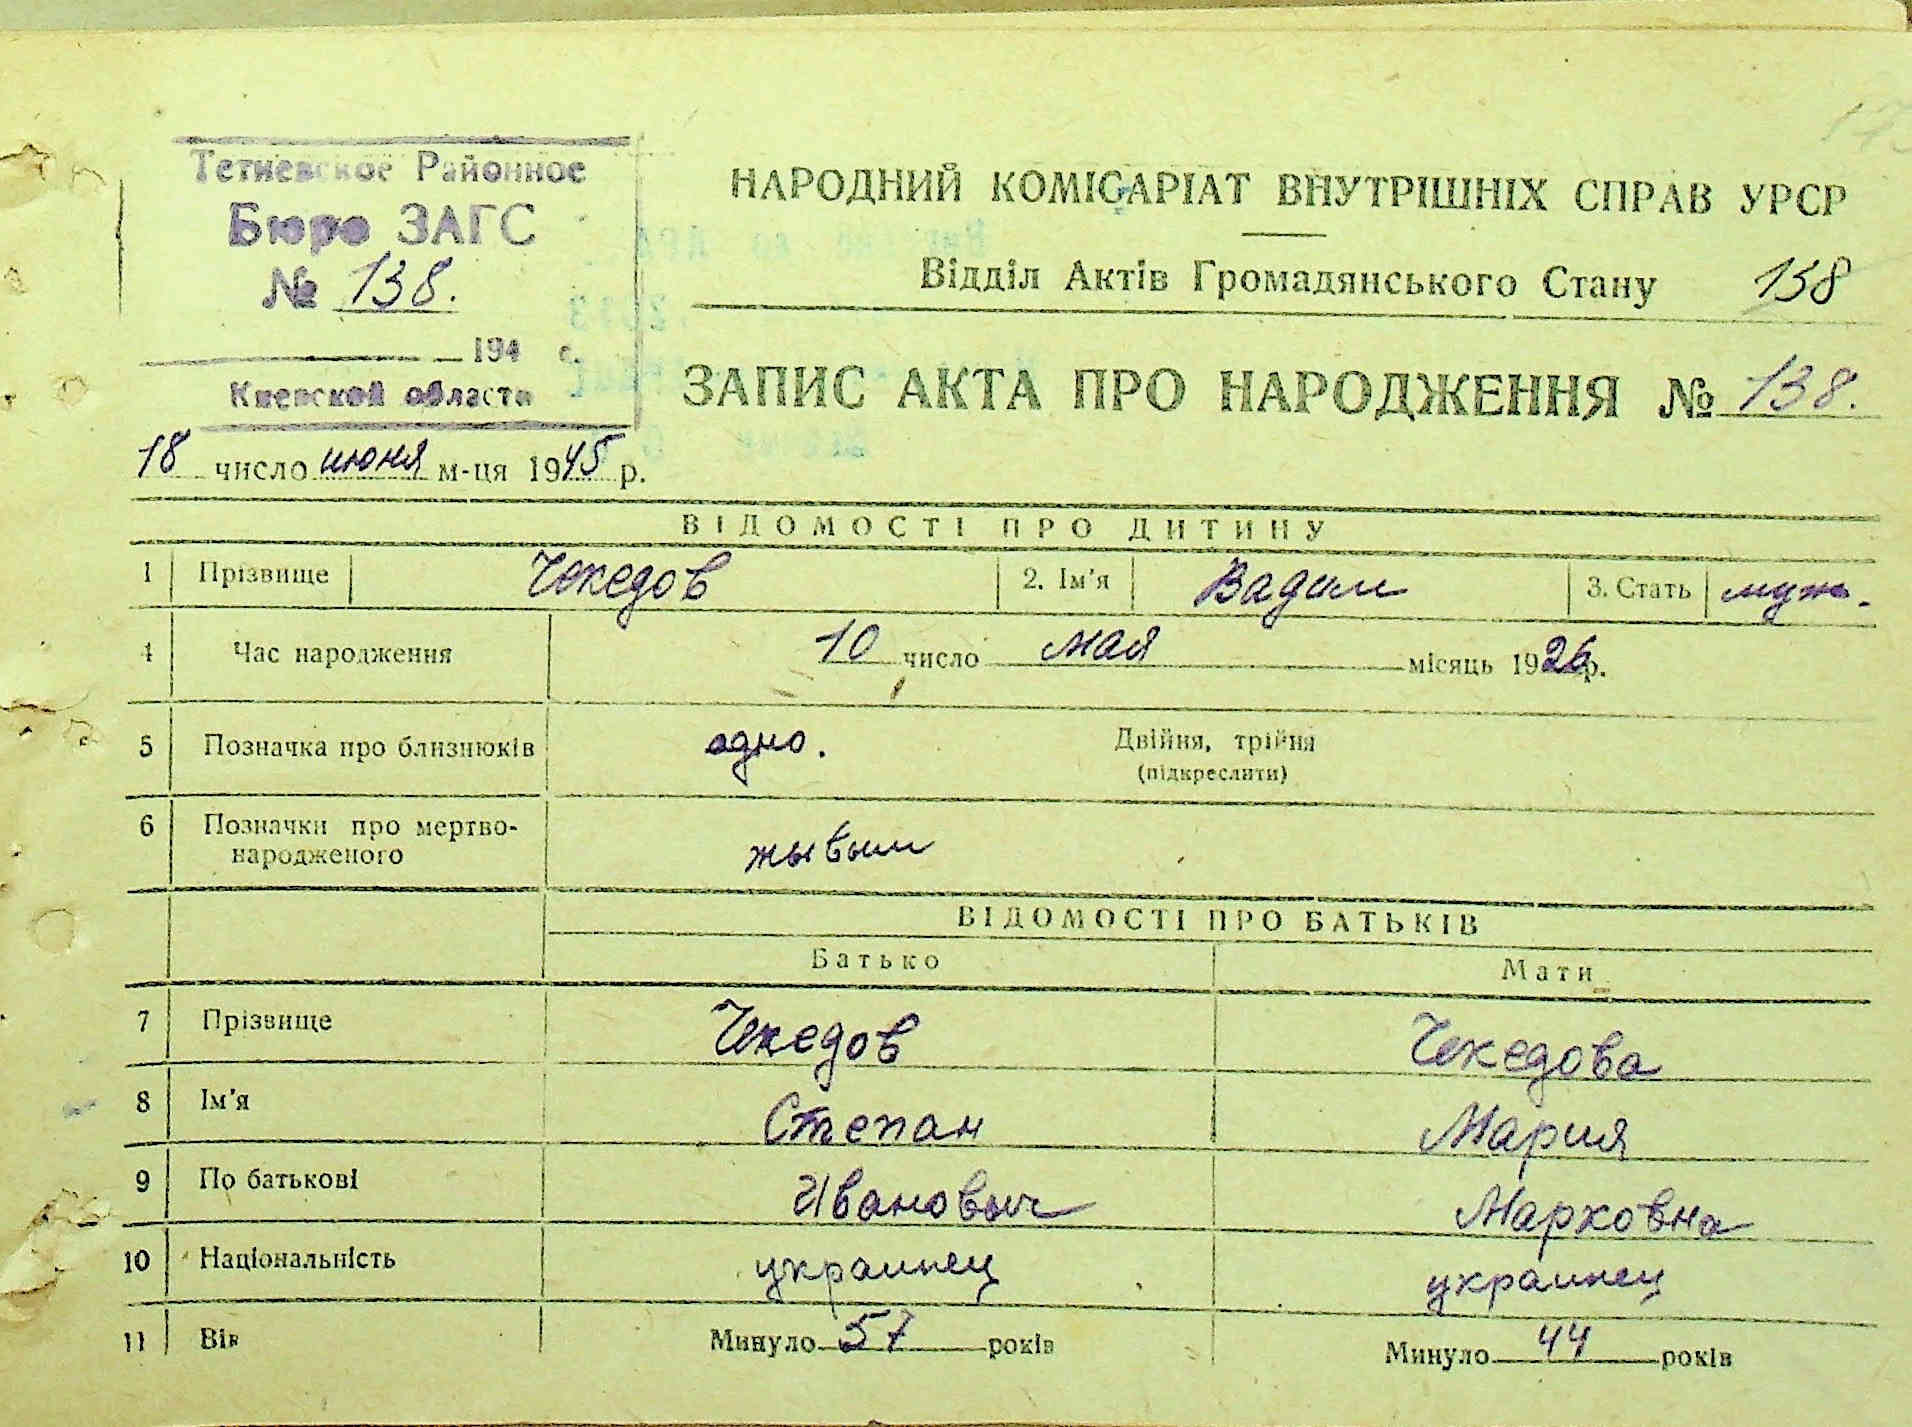 Тетиевское Районное
Бюро ЗАГС
№ 138.
194 г.
Киевской области
НАРОДНИЙ КОМІСАРІАТ ВНУТРІШНІХ СПРАВ УРСР
Відділ Актів Громадянського Стану 138
ЗАПИС АКТА ПРО НАРОДЖЕННЯ № 138.
18 число июня м-ця 1945 р.
ВІДОМОСТІ ПРО ДИТИНУ
1 Прізвище Чекедов 2. Ім'я Вадим 3. Стать муж.
4 Час народження 10 число мая місяць 1926 р.
5 Позначка про близнюків одно. Двійня, трійня
(підкреслити)
6 Позначки про мертво-
народженого жывым
ВІДОМОСТІ ПРО БАТЬКІВ
Батько Мати
7 Прізвище Чекедов Чекедова
8 Ім'я Степан Мария
9 По батькові Иванович Марковна
10 Національність украинец украинец
11 Вік Минуло 57 років Минуло 44 років